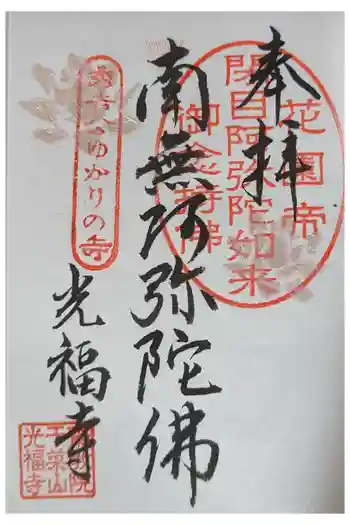 奉拝
花園帝
閉目阿弥陀如来
御念持佛
南無阿弥陀佛
秀吉公ゆかりの寺
光福寺
院
干菜山
光福寺